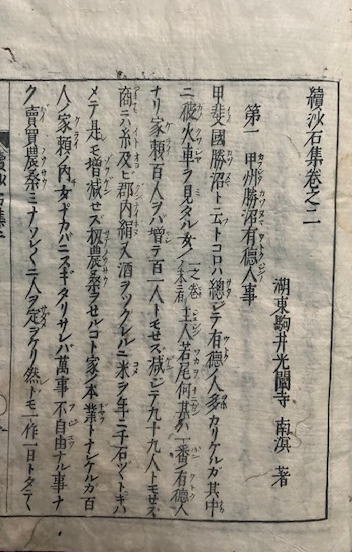 續沙石集卷之二
湖東駒井光闡寺 南溟 著
第一 甲州勝沼有徳人事
甲斐國勝沼ト云トコロハ總ジテ有徳ノ人多カリケルガ其中
ニ彼火車ヲ見タル女ノ 主人若尾何某ハ一番ノ有徳人
ナリ家頼百人ヲバ増テ百一人トモせズ減ジテ九十九人トモせズ
商ニハ糸及ヒ郡内絹又酒ヲツクレルニ米ヲ年ニ千石ヅヽトキハ
メテ是モ増減せズ扨農桑ヲせルコト家ノ本業トナシケルガ百
人ノ家頼ノ内女ナカバニスギタリサレバ萬事不自由ナル事ナ
ク賣買農桑ミナソレ〱ニ人ヲ定ヲケリ然トモ一作一日トタテ